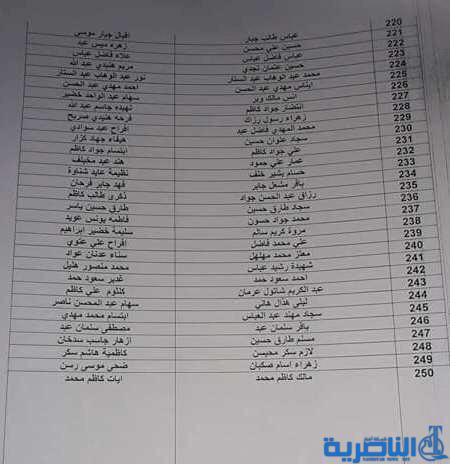 220
221 عباس طالب جبار اقبال جبار موسى
222 حسين علي محسن زهراء ميس عبد
223 عباس فاضل عباس علاء فاضل عباس
224 حسين عثمان نجدي مريم هنيدي عبد الله
225 محمد عبد الوهاب عبد الستار نور عبد الوهاب عبد الستار
226 ايناس مهدي عبد الحسن احمد مهدي عبد الحسن
227 انس مالك وبر سهام عبد الواحد خضير
228 انتصار جواد كاظم نهيده جاسم عبد الله
229 زهراء رسول رزاك فرحه هنيدي صريح
230 محمد المهدي فاضل عبد افراح عبد سوادي
231 سجاد علوان حسين حيفاء جهاد كزار
232 علي جواد كاظم ابتسام جواد كاظم
233 عمار علي حمود هند عبد مخيلف
234 حسام بشير خلف نظيمة عايد شناوة
235 باقر مشعل جابر فهد جابر فرحان
236 رزاق عبد الحسن جواد ذكرى طالب كاظم
237 سجاد طارق حسين طارق حسين ياسر
238 محمد جواد حسون فاطمه يونس عويد
239 مروة كريم سالم سليمة خضير ابراهيم
240 علي محمد فاضل افراح علي علوي
241 معتز محمد مهلهل سناء عدنان عواد
242 شهيدة رشيد عباس محمد منصور هليل
243 احمد سعود حمد غدير سعود حمد
244 عبد الكريم شاتول عرمان كلثوم علي كاظم
245 ليلى هذال هاني سهام عبد المحسن ناصر
246 سجاد مهند عبد العباس ابتسام محمد مهدي
247 باقر سلمان عبد مصطفى سلمان عبد
248 مسلم طارق حسين ازهار جاسب سدخان
249 لازم سكر محيسن كاظمية هاشم سكر
250 زهراء اسام صكبان ضحى موسى رسن
مالك كاظم محمد ايات كاظم محمد
شبكة اخبار
الناصرية